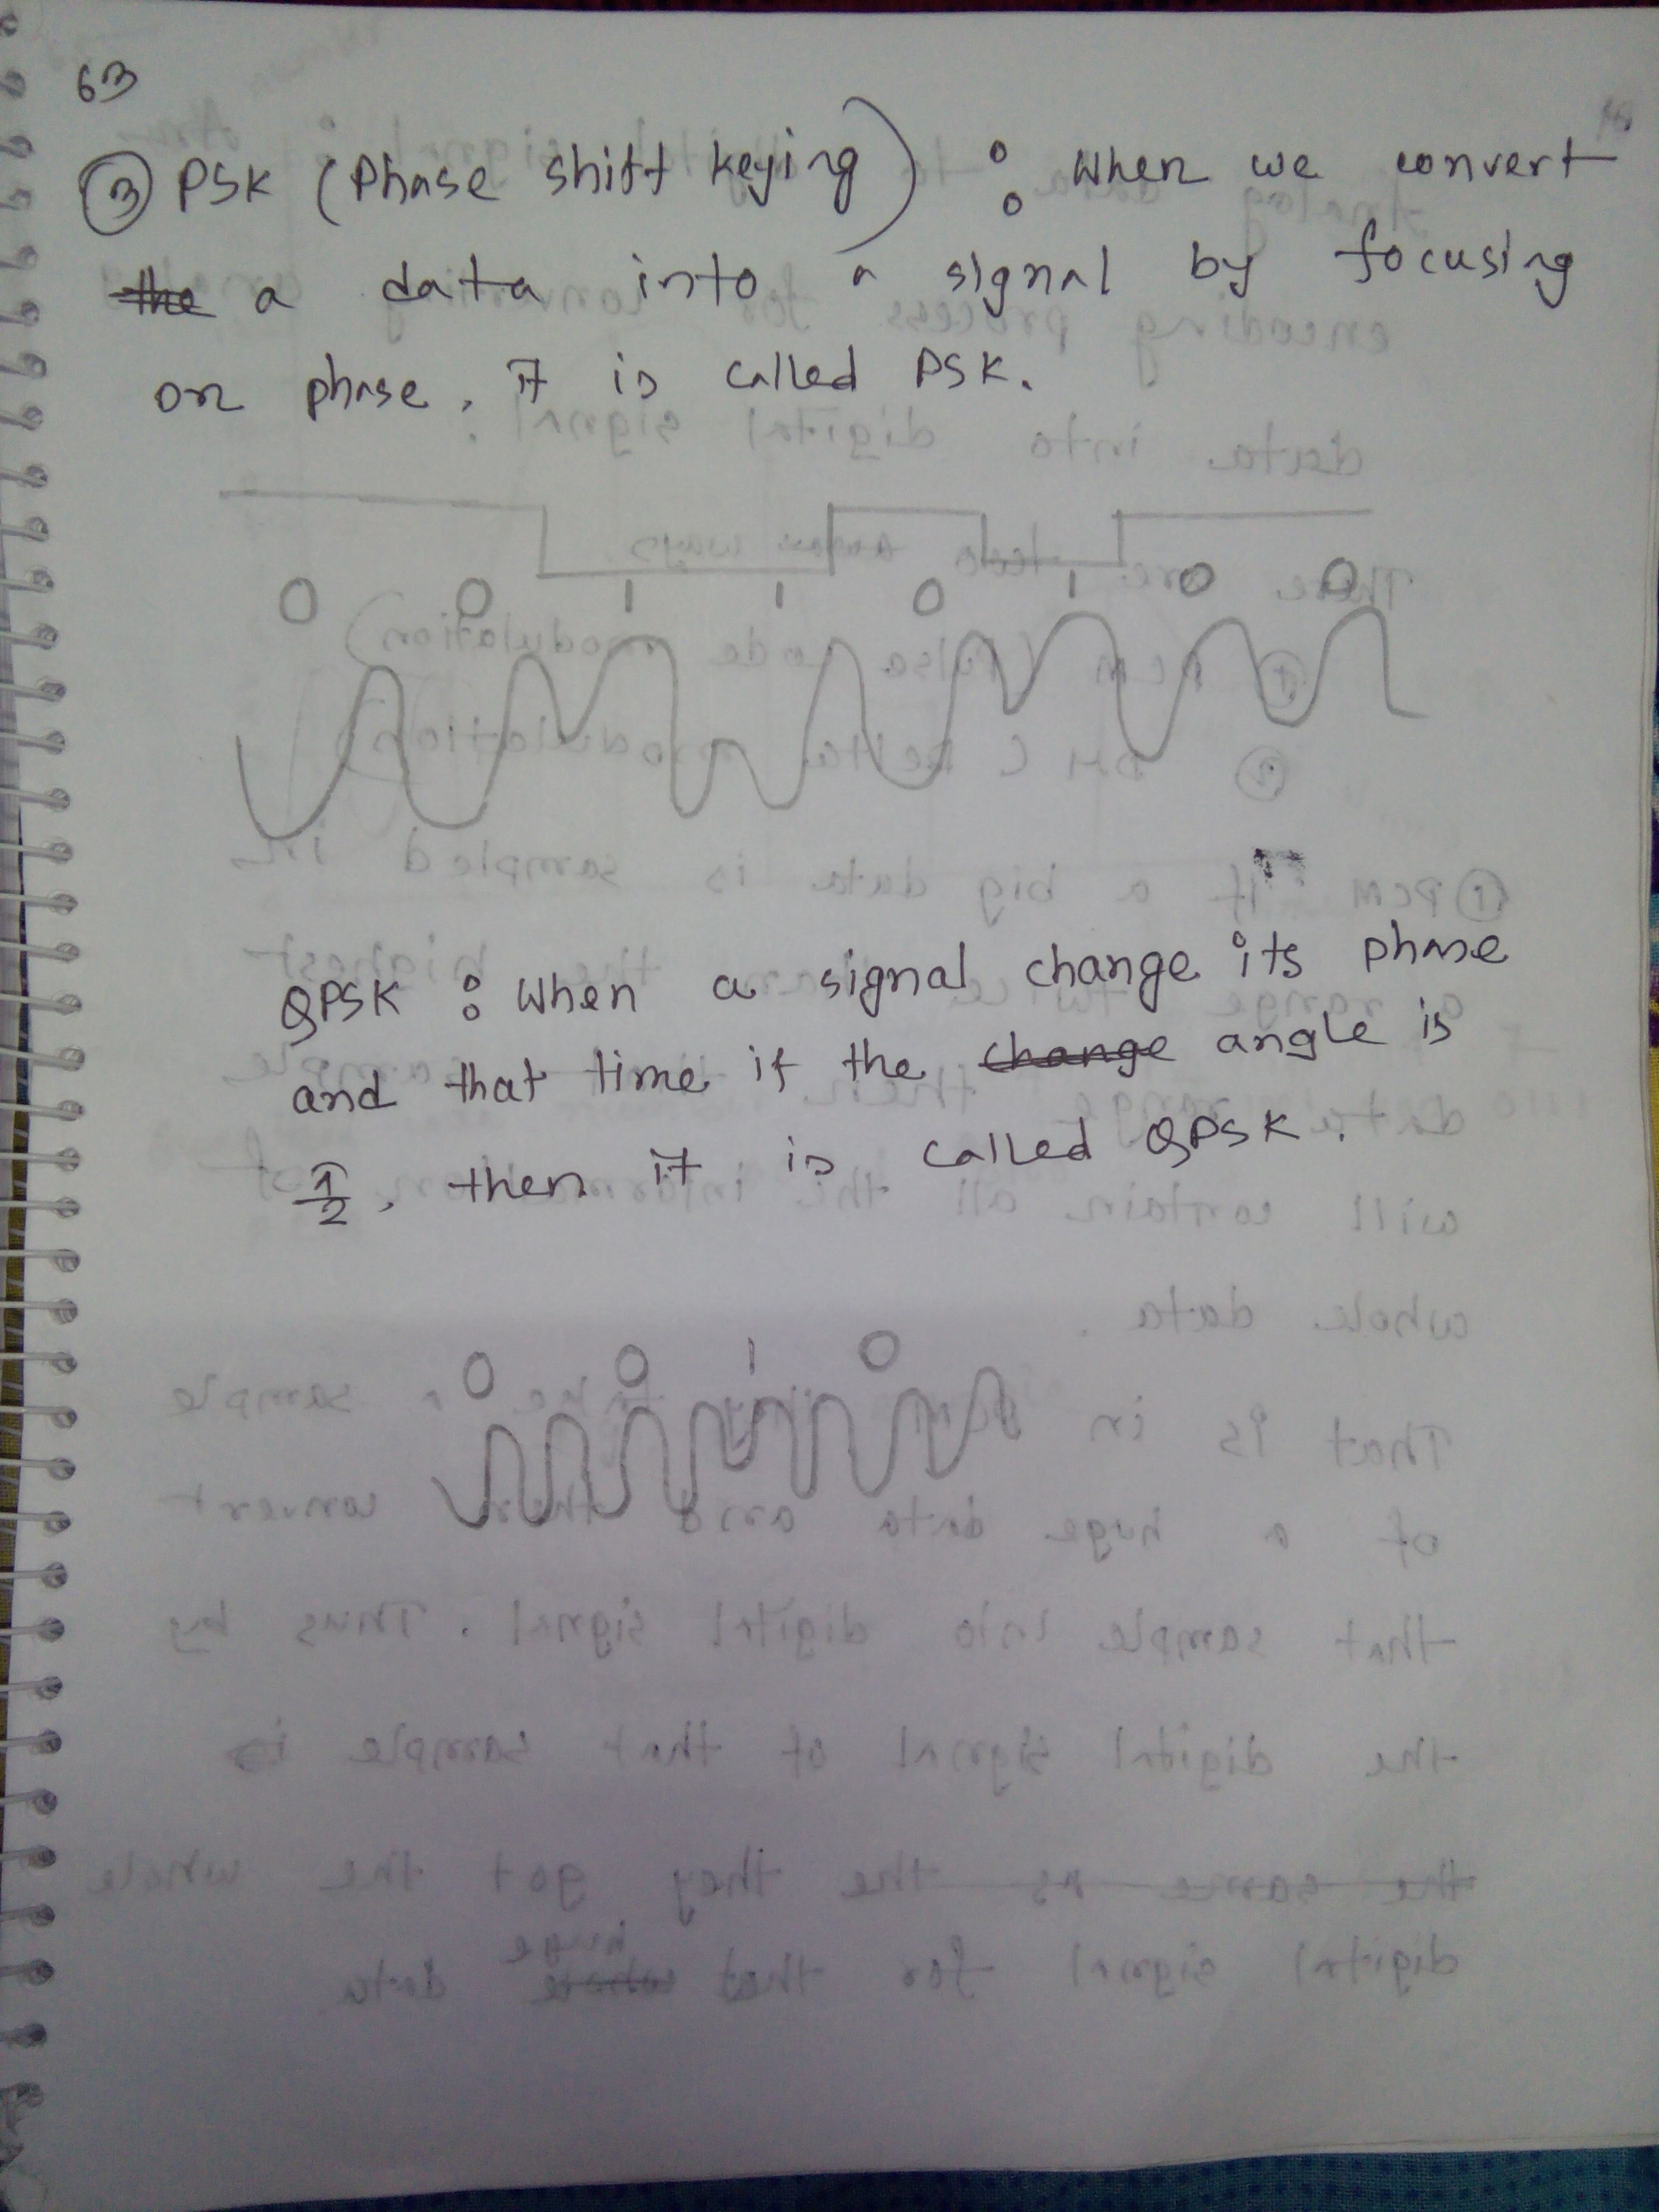 63
③ PSK (Phase shift keying) : When we convert
the a data into a signal by focusing
on phase, it is called PSK.
0 0 1 1 0 1 0 0
QPSK : When a signal change its phase
and that time if the change angle is
π/2, then it is called QPSK.
0 0 1 0